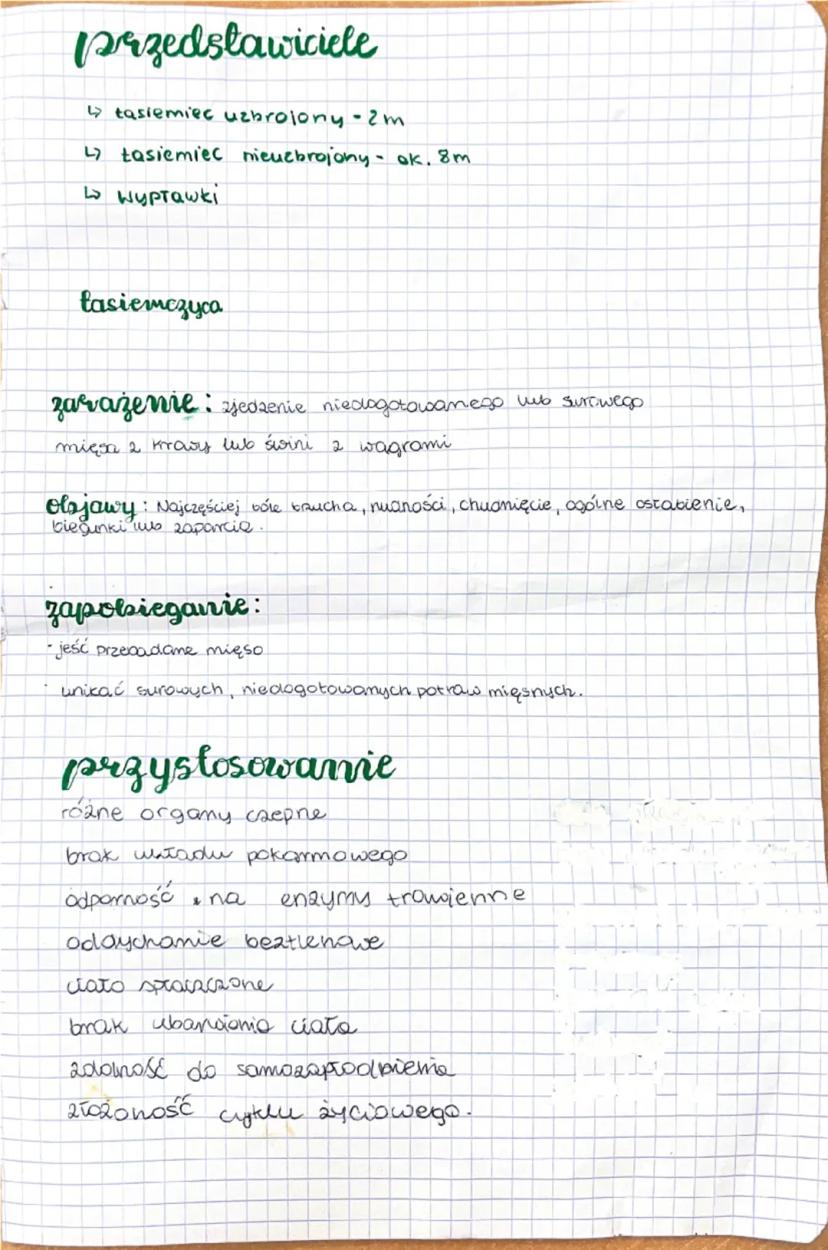 przedstawiciele
↳ tasiemiec uzbrojony - 2m
↳ tasiemiec nieuzbrojony - ok. 8m
↳ wypławki
tasiemczyca
zarażenie: zjedzenie niedogotowanego lub surowego
mięsa z krowy lub świni z wągrami
objawy: Najczęściej bóle brzucha, nudności, chudnięcie, ogólne osłabienie,
biegunki lub zaparcia.
zapobieganie:
· jeść przebadane mięso
· unikać surowych, niedogotowanych potraw mięsnych.
przystosowanie
różne organy czepne
brak układu pokarmowego
odporność na enzymy trawienne
oddychanie beztlenowe
ciało spłaszczone
brak ubarwienia ciała
zdolność do samozapłodnienia
złożoność cyklu życiowego.